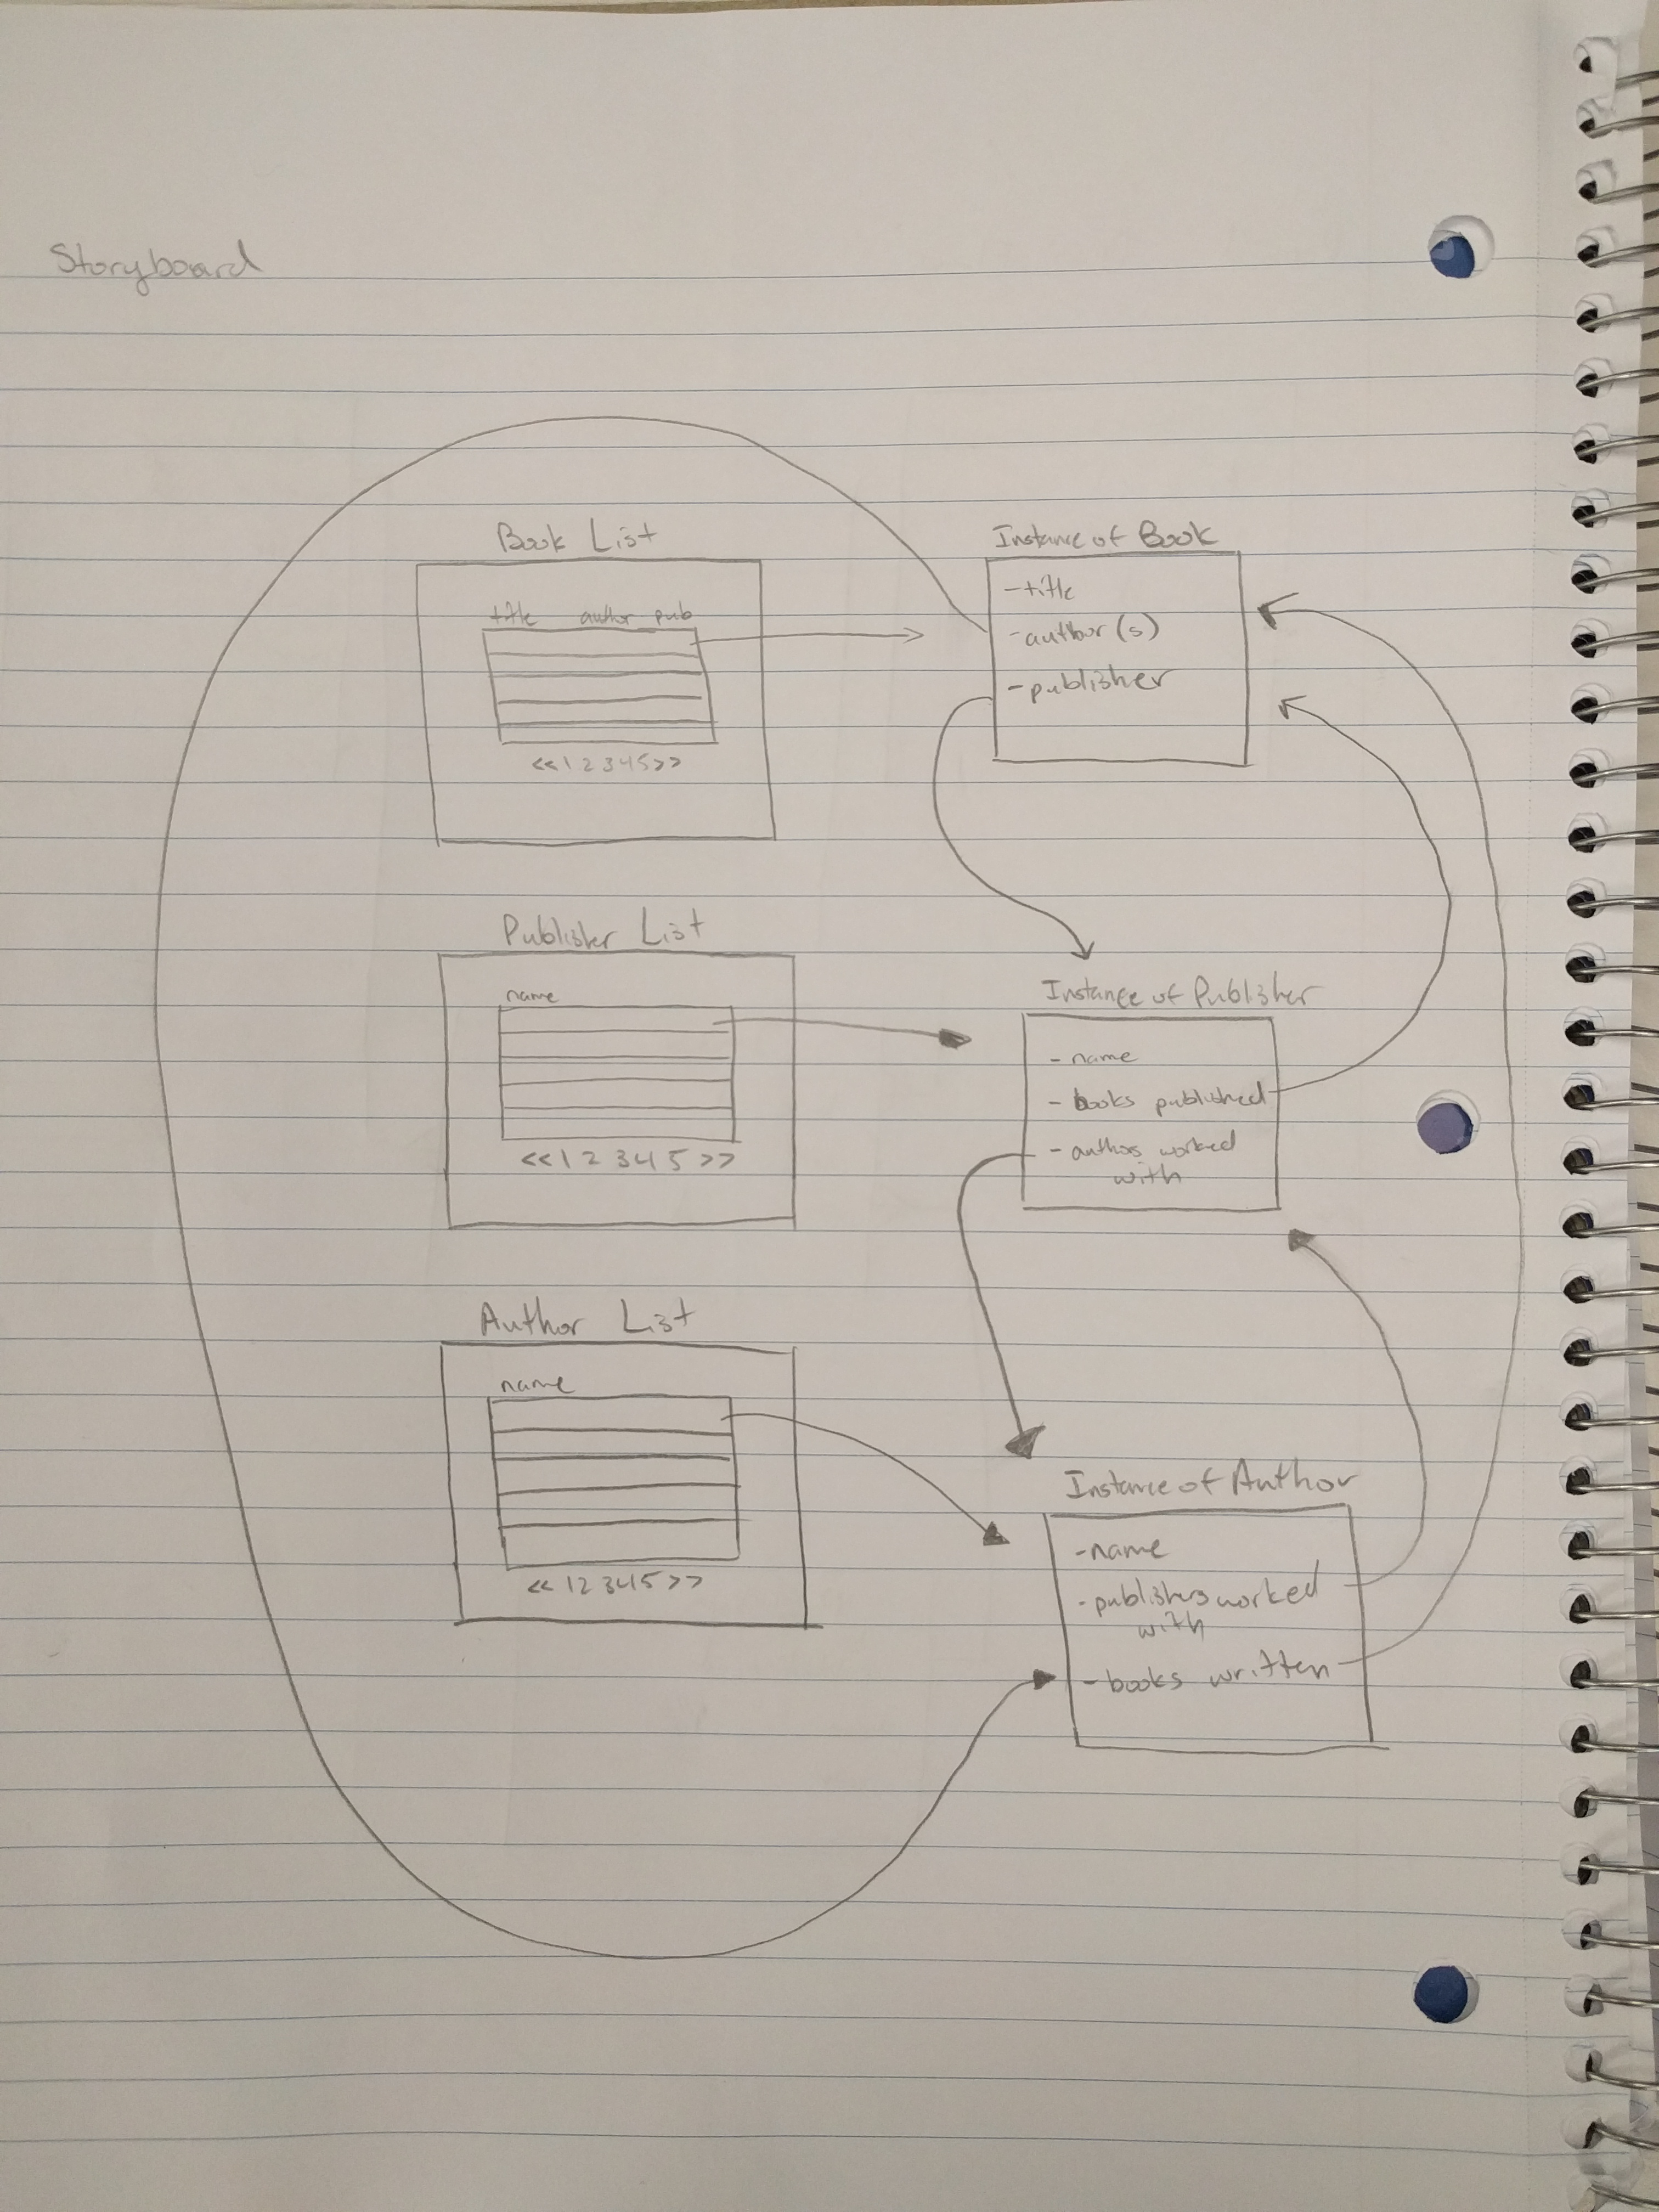 Storyboard
Book List
title author pub
<<1 2 3 4 5>>
Instance of Book
-title
-author(s)
-publisher
Publisher List
name
<<1 2 3 4 5>>
Instance of Publisher
- name
- books published
- authors worked
with
Author List
name
<<1 2 3 4 5>>
Instance of Author
-name
-publishers worked
with
-books written